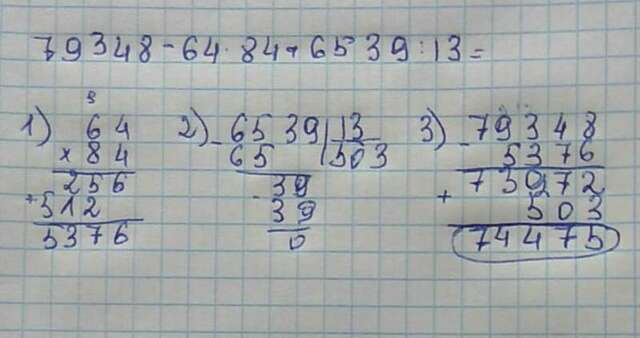 79348-64·84+6539:13=
3
1) 64
× 84
256
+ 512
5376
2) - 6539 | 13
65 | 503
- 39
39
0
3) - 79348
5376
+ 73972
503
74475